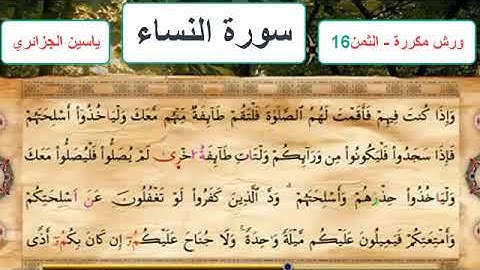 ورش مكررة - الثمن16
سورة النساء
ياسين الجزائري
وَإِذَا كُنتَ فِيهِمْ فَأَقَمْتَ لَهُمُ الصَّلَوٰةَ فَلْتَقُمْ طَآئِفَةٌ مِّنْهُم مَّعَكَ وَلْيَاخُذُوٓا۟ أَسْلِحَتَهُمْ
فَإِذَا سَجَدُوا۟ فَلْيَكُونُوا۟ مِن وَرَآئِكُمْ وَلْتَاتِ طَآئِفَةٌ ا۟خْر۪ىٰ لَمْ يُصَلُّوا۟ فَلْيُصَلُّوا۟ مَعَكَ
وَلْيَاخُذُوا۟ حِذْرَهُمْ وَأَسْلِحَتَهُمْ وَدَّ الَّذِينَ كَفَرُوا۟ لَوْ تَغْفُلُونَ عَنَ اَسْلِحَتِكُمْ
وَأَمْتِعَتِكُمْ فَيَمِيلُونَ عَلَيْكُم مَّيْلَةً وَٰحِدَةً وَلَا جُنَاحَ عَلَيْكُمُۥٓ إِن كَانَ بِكُمُۥٓ أَذًى